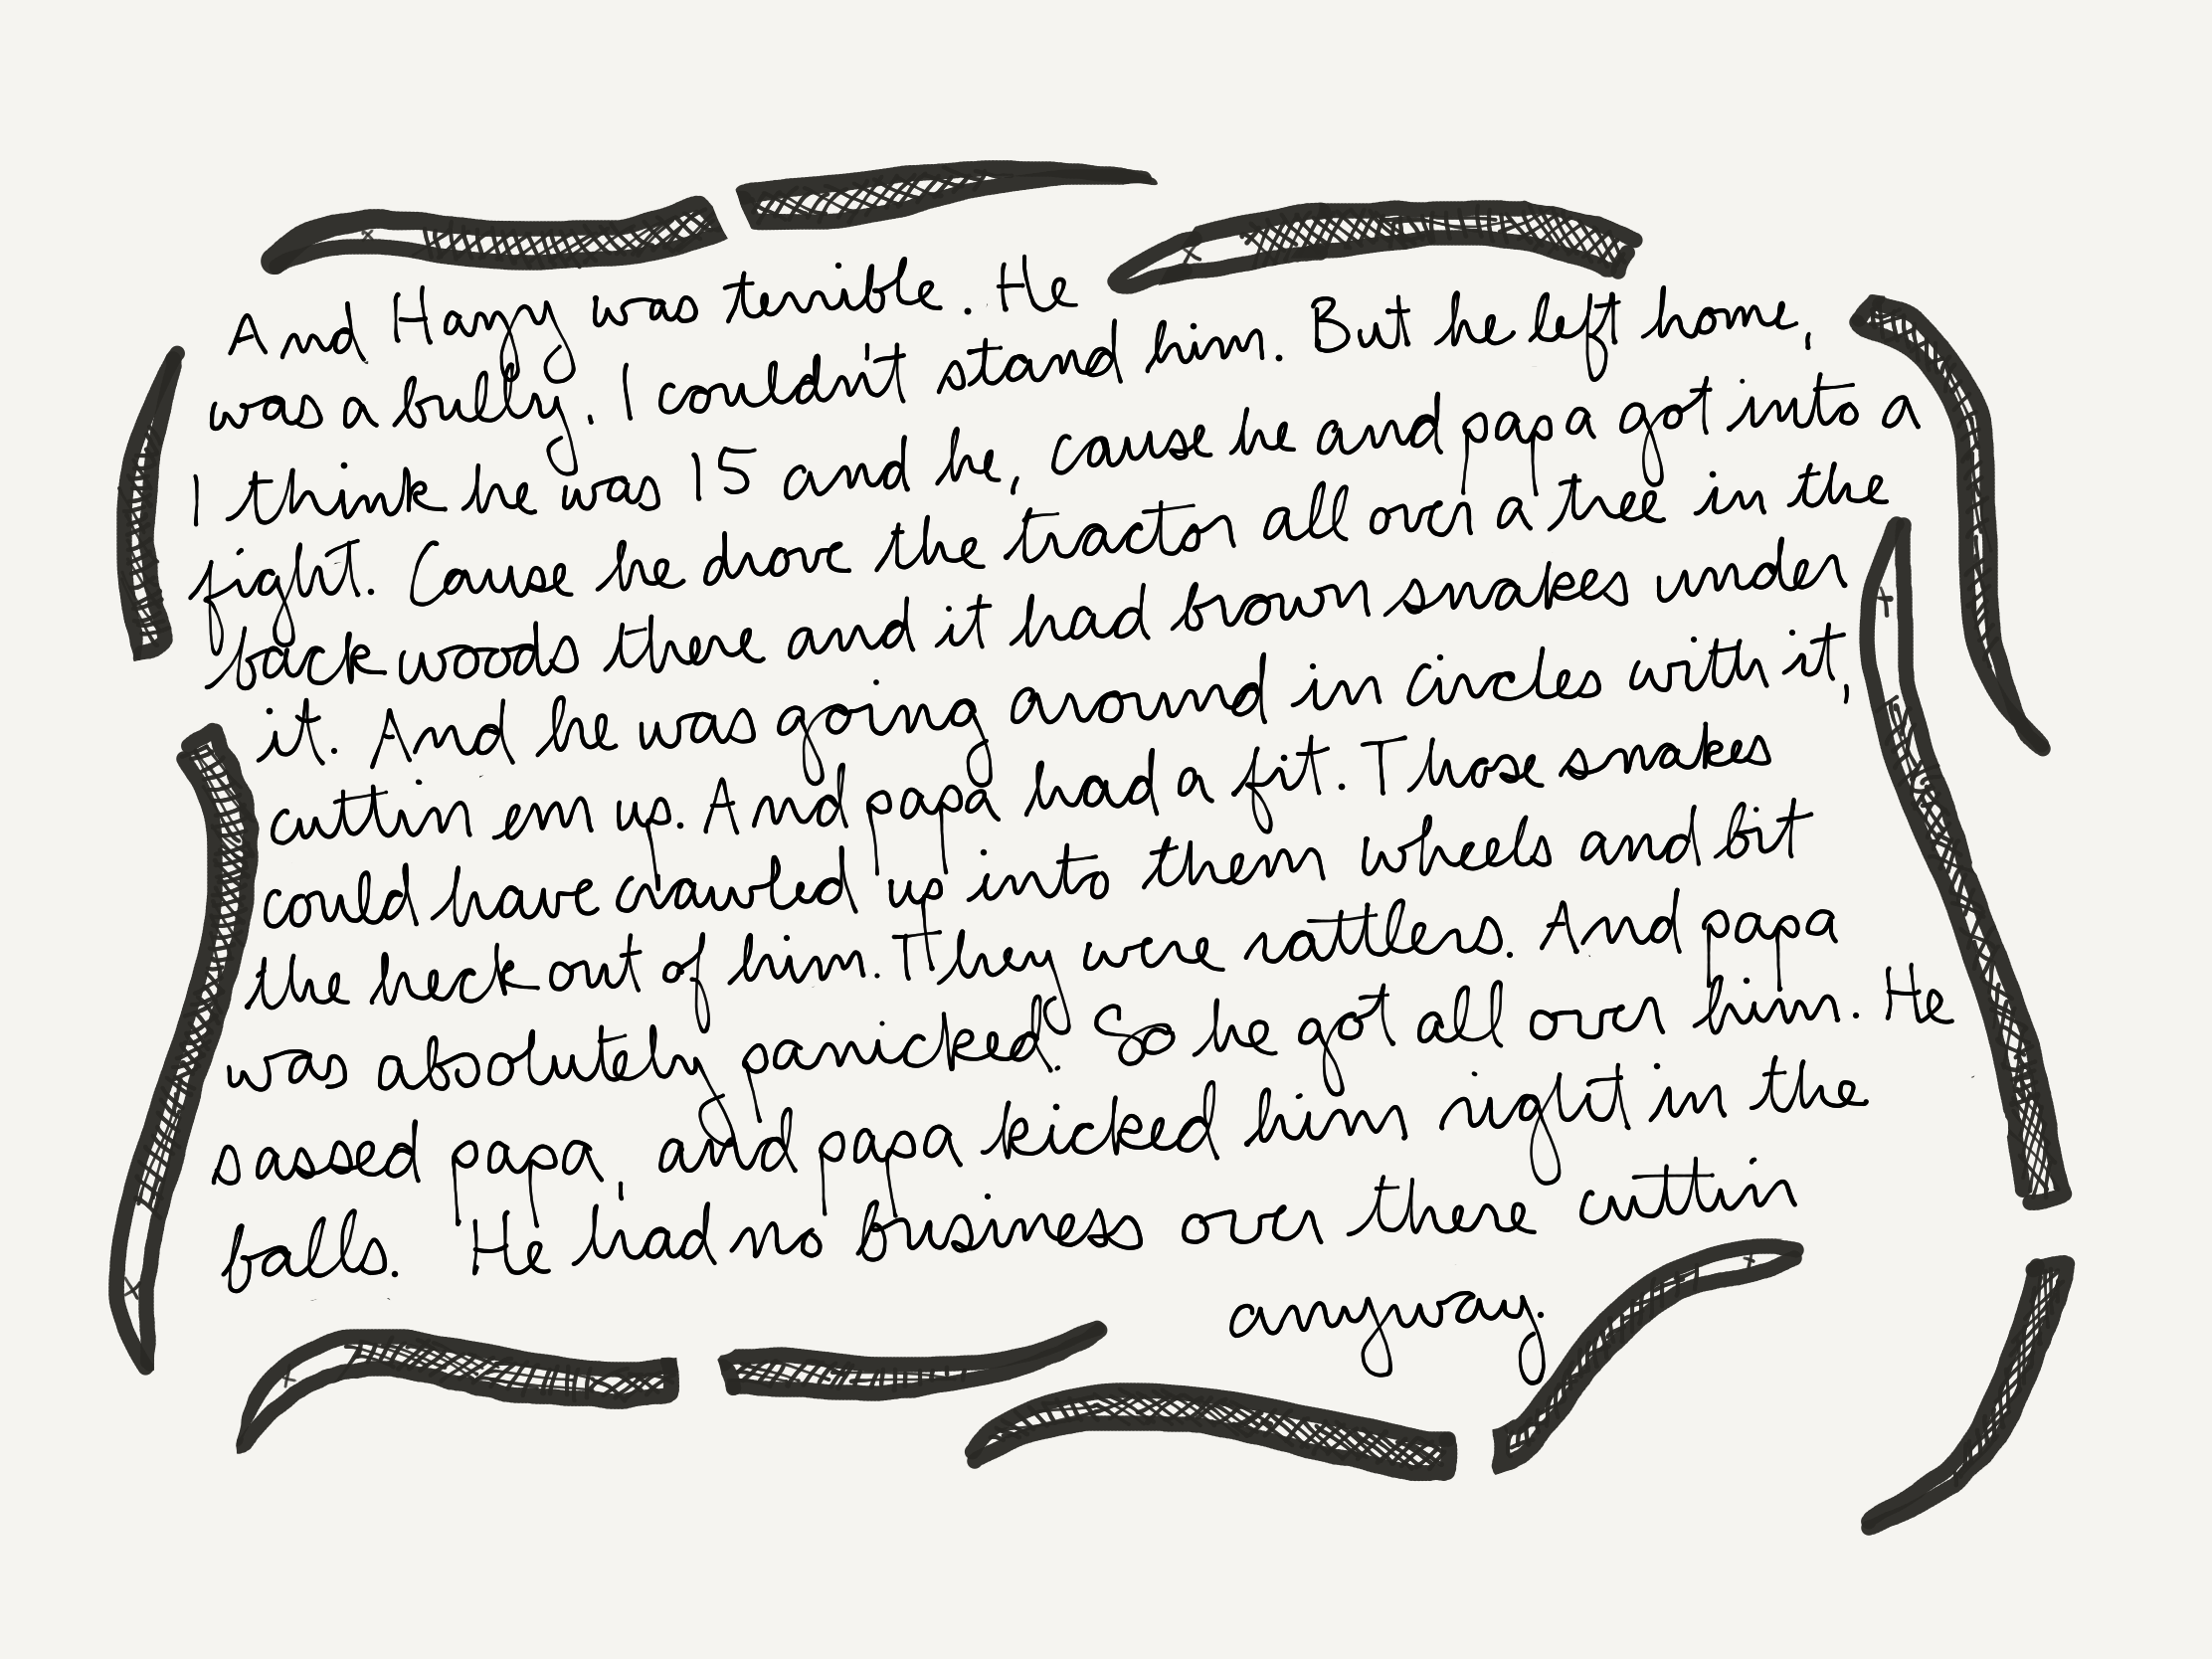 And Harry was terrible. He
was a bully. I couldn't stand him. But he left home,
I think he was 15 and he, cause he and papa got into a
fight. Cause he drove the tractor all over a tree in the
back woods there and it had brown snakes under
it. And he was going around in circles with it,
cuttin em up. And papa had a fit. Those snakes
could have crawled up into them wheels and bit
the heck out of him. They were rattlers. And papa
was absolutely panicked. So he got all over him. He
sassed papa, and papa kicked him right in the
balls. He had no business over there cuttin
anyway.